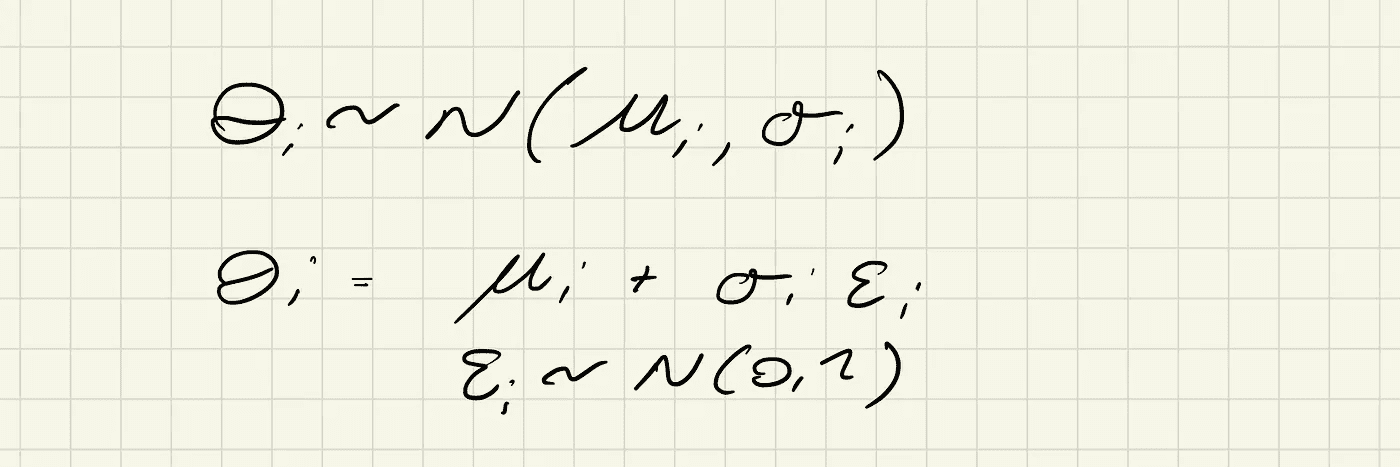 θᵢ ~ N(μᵢ, σᵢ)
θᵢ = μᵢ + σᵢ εᵢ
εᵢ ~ N(0,1)